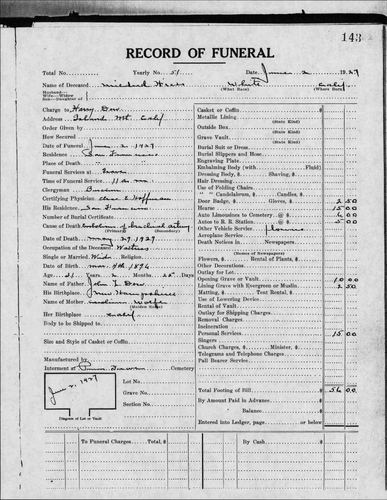 143
RECORD OF FUNERAL
Total No. Yearly No. 51 Date June 2 1927
Name of Deceased White Calif
Husband Wife Widow Son Daughter of (What Race) (Where Born)
Charge to Harry Dow
Address Island Mt. Calif
Order Given by
How Secured
Date of Funeral June 2 1927
Residence San Francisco
Place of Death
Funeral Services at Grave
Time of Funeral Service 11 a.m.
Clergyman
Certifying Physician E. Hoffman
His Residence San Francisco
Number of Burial Certificate
Cause of Death Embolism of brachial artery
(Primary) (Secondary)
Date of Death May 29 1927
Occupation of the Deceased Waitress
Single or Married Wido Religion
Date of Birth Mar. 9th 1896
Age 31 Years 2 Months 20 Days
Name of Father John L Dow
His Birthplace New Hampshire
Name of Mother Caroline Wolfe
(Maiden Name)
Her Birthplace Calif
Body to be Shipped to
Size and Style of Casket or Coffin
Manufactured by
Interment at Cemetery
Lot No.
Grave No.
Section No.
June 2, 1927
Diagram of Lot or Vault
Casket or Coffin
Metallic Lining
(State Kind)
Outside Box
(State Kind)
Grave Vault
(State Kind)
Burial Suit or Dress
Burial Slippers and Hose
Engraving Plate
Embalming Body (with Fluid)
Dressing Body, $ Shaving, $
Hair Dressing
Use of Folding Chairs
" " Candelabrum, $ Candles, $
Door Badge, $ Gloves, $ 2 50
Hearse 15 00
Auto Limousines to Cemetery @ $ 6 00
Autos to R. R. Station @ $ 5 00
Other Vehicle Service Flowers
Aeroplane Service
Death Notices in Newspapers
(Names of Newspapers)
Flowers, $ Rental of Plants, $
Other Decorations
Outlay for Lot
Opening Grave or Vault 10 00
Lining Grave with Evergreen or Muslin 2 50
Matting, $ Tent Rental, $
Use of Lowering Device
Rental of Vault
Outlay for Shipping Charges
Removal Charges
Incineration
Personal Services 15 00
Singers
Church Charges, $ Minister, $
Telegrams and Telephone Charges
Pall Bearer Service
Total Footing of Bill $ 56 00
By Amount Paid in Advance
Balance
Entered into Ledger, page or below
To Funeral Charges Total, $ By Cash $